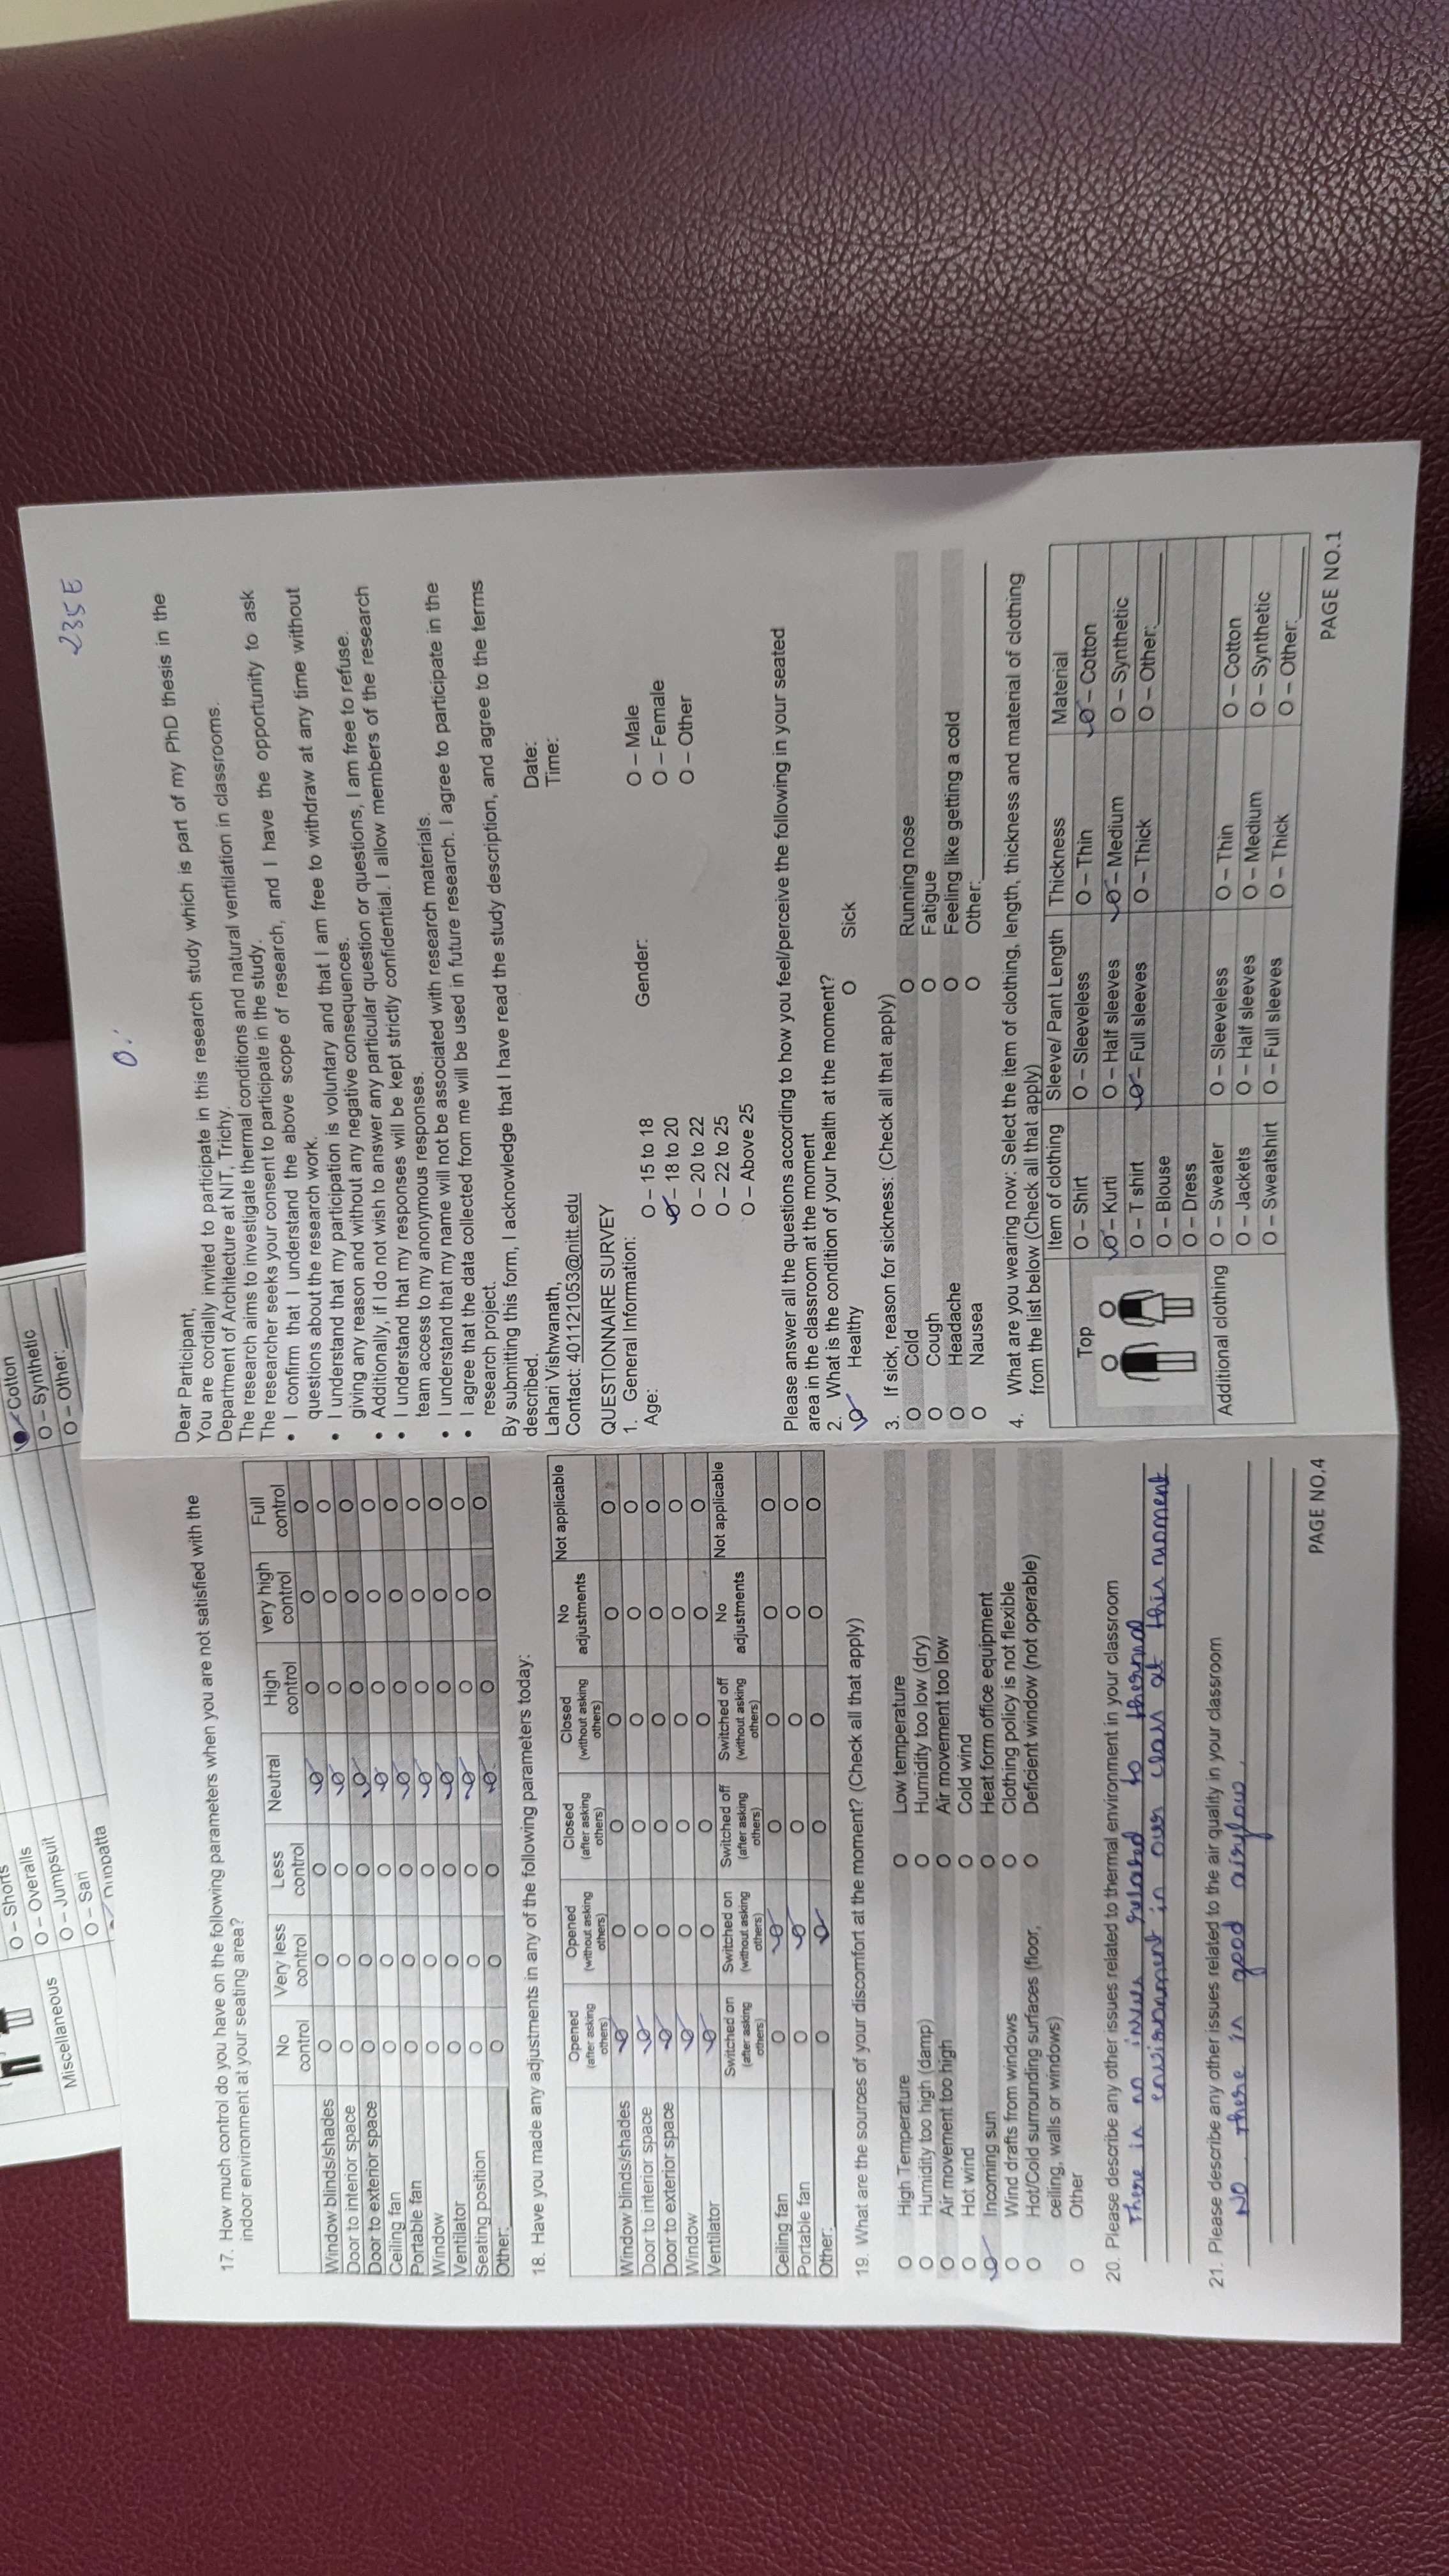 Cotton
O – Synthetic
O – Other:
O – Shorts
O – Overalls
O – Jumpsuit
O – Sari
Dupatta
Miscellaneous
17. How much control do you have on the following parameters when you are not satisfied with the
indoor environment at your seating area?
No control Very less control Less control Neutral High control very high control Full control
Window blinds/shades O O O O O O O
Door to interior space O O O O O O O
Door to exterior space O O O O O O O
Ceiling fan O O O O O O O
Portable fan O O O O O O O
Window O O O O O O O
Ventilator O O O O O O O
Seating position O O O O O O O
Other: O O O O O O O
18. Have you made any adjustments in any of the following parameters today:
Opened (after asking others) Opened (without asking others) Closed (after asking others) Closed (without asking others) No adjustments Not applicable
Window blinds/shades O O O O O O
Door to interior space O O O O O O
Door to exterior space O O O O O O
Window O O O O O O
Ventilator O O O O O O
Switched on (after asking others) Switched on (without asking others) Switched off (after asking others) Switched off (without asking others) No adjustments Not applicable
Ceiling fan O O O O O O
Portable fan O O O O O O
Other: O O O O O O
19. What are the sources of your discomfort at the moment? (Check all that apply)
O High Temperature O Low temperature
O Humidity too high (damp) O Humidity too low (dry)
O Air movement too high O Air movement too low
O Hot wind O Cold wind
O Incoming sun O Heat form office equipment
O Wind drafts from windows O Clothing policy is not flexible
O Hot/Cold surrounding surfaces (floor, O Deficient window (not operable)
ceiling, walls or windows)
O Other
20. Please describe any other issues related to thermal environment in your classroom
There is no issues related to thermal
environment in our class at this moment
21. Please describe any other issues related to the air quality in your classroom
No. there is good airflow.
PAGE NO.4
0.
235E
Dear Participant,
You are cordially invited to participate in this research study which is part of my PhD thesis in the
Department of Architecture at NIT, Trichy.
The research aims to investigate thermal conditions and natural ventilation in classrooms.
The researcher seeks your consent to participate in the study.
• I confirm that I understand the above scope of research, and I have the opportunity to ask
questions about the research work.
• I understand that my participation is voluntary and that I am free to withdraw at any time without
giving any reason and without any negative consequences.
• Additionally, if I do not wish to answer any particular question or questions, I am free to refuse.
• I understand that my responses will be kept strictly confidential. I allow members of the research
team access to my anonymous responses.
• I understand that my name will not be associated with research materials.
• I agree that the data collected from me will be used in future research. I agree to participate in the
research project.
By submitting this form, I acknowledge that I have read the study description, and agree to the terms
described.
Lahari Vishwanath, Date:
Contact: 401121053@nitt.edu Time:
QUESTIONNAIRE SURVEY
1. General Information:
Age: O – 15 to 18 Gender: O – Male
O – 18 to 20 O – Female
O – 20 to 22 O – Other
O – 22 to 25
O – Above 25
Please answer all the questions according to how you feel/perceive the following in your seated
area in the classroom at the moment
2. What is the condition of your health at the moment?
O Healthy O Sick
3. If sick, reason for sickness: (Check all that apply)
O Cold O Running nose
O Cough O Fatigue
O Headache O Feeling like getting a cold
O Nausea O Other:
4. What are you wearing now: Select the item of clothing, length, thickness and material of clothing
from the list below (Check all that apply)
Item of clothing Sleeve/ Pant Length Thickness Material
Top O – Shirt O – Sleeveless O – Thin O – Cotton
O – Kurti O – Half sleeves O – Medium O – Synthetic
O – T shirt O – Full sleeves O – Thick O – Other:
O – Blouse
O – Dress
Additional clothing O – Sweater O – Sleeveless O – Thin O – Cotton
O – Jackets O – Half sleeves O – Medium O – Synthetic
O – Sweatshirt O – Full sleeves O – Thick O – Other:
PAGE NO.1